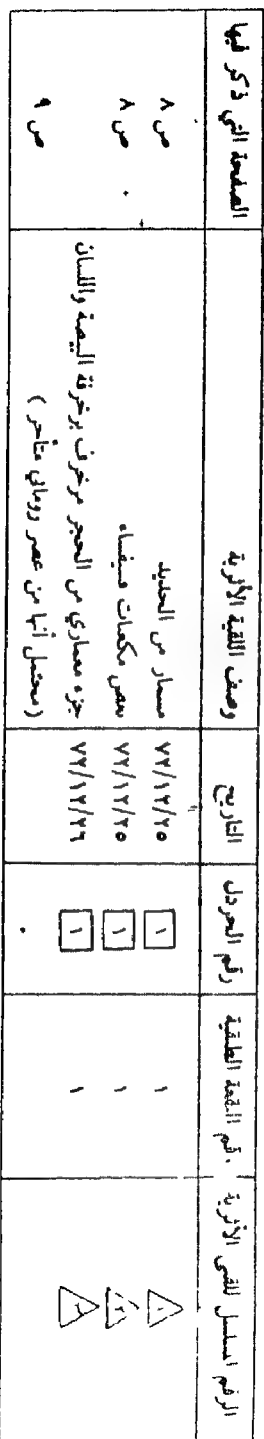 الرقم المسلسل للقى الأثرية | رقم القمة الطبقية | رقم الجردل | التاريخ | وصف اللقية الأثرية | الصفحة التي ذكر فيها
١ | ١ | ١ | ٧٢/١٢/٢٥ | مسمار من الحديد | ص ٨
٢ | ١ | ١ | ٧٢/١٢/٢٥ | بعض مكعبات فسيفساء | ص ٨
٣ | ١ | ١ | ٧٢/١٢/٢٦ | جزء معماري من الحجر مزخرف بزخرفة البيضة واللسان | ص ٩
(محتمل أنها من عصر روماني متأخر)